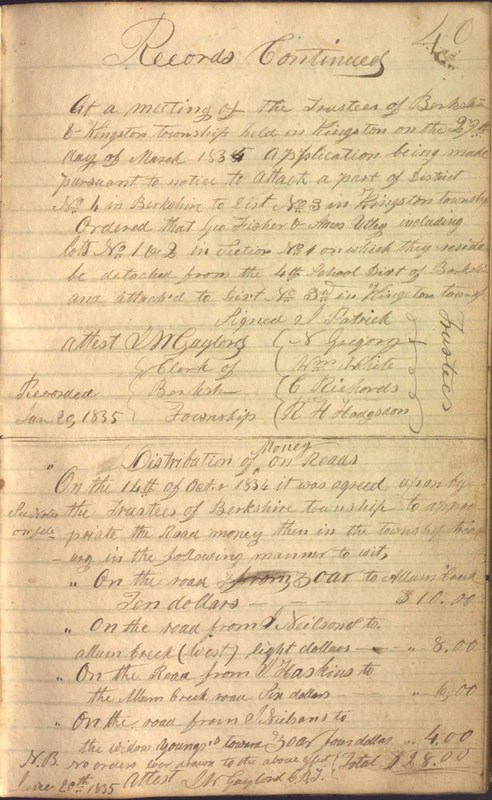 40
Records Continued
At a meeting of the Trustees of Berkshire
& Kingston township held in Kingston on the 27th
day of March 1834 Application being made
pursuant to notice to Attach a part of District
No 4 in Berkshire to Dist No 3 in Kingston township
Ordered that Geo Fisher & Amos Utley including
lots No 1 & 2 in Section No 1 on which they reside
be detached from the 4th School Dist of Berkshire
and attach'd to Dist No 3rd in Kingston township
Signed J Patrick
attest I W Gaylord N Gregory
Clerk of Wm White
Recorded Berksh C Richards
Jan 20, 1835 Township R H Hodgsdon
Trustees
Distribution of Money on Roads
On the 14th of Octr 1834 it was agreed upon by
See Notes the Trustees of Berkshire township to appro
on file priate the Road money then in the township treas
ury in the following manner to wit,
" On the road from Zoar to Allum Creek
Ten dollars — $10.00
" On the road from J Neilsons to
allum creek (West) Eight dollars — " 8.00
" On the Road from J Haskins to
the Allum Creek road Six dollars " 6,00
" On the road from J Nielsons to
the widow Youngs toward Zoar four dollars " 4.00
N.B. No orders ever drawn to the above effect Total $28.00
June 20th 1835 Attest I W Gaylord C.B.T.